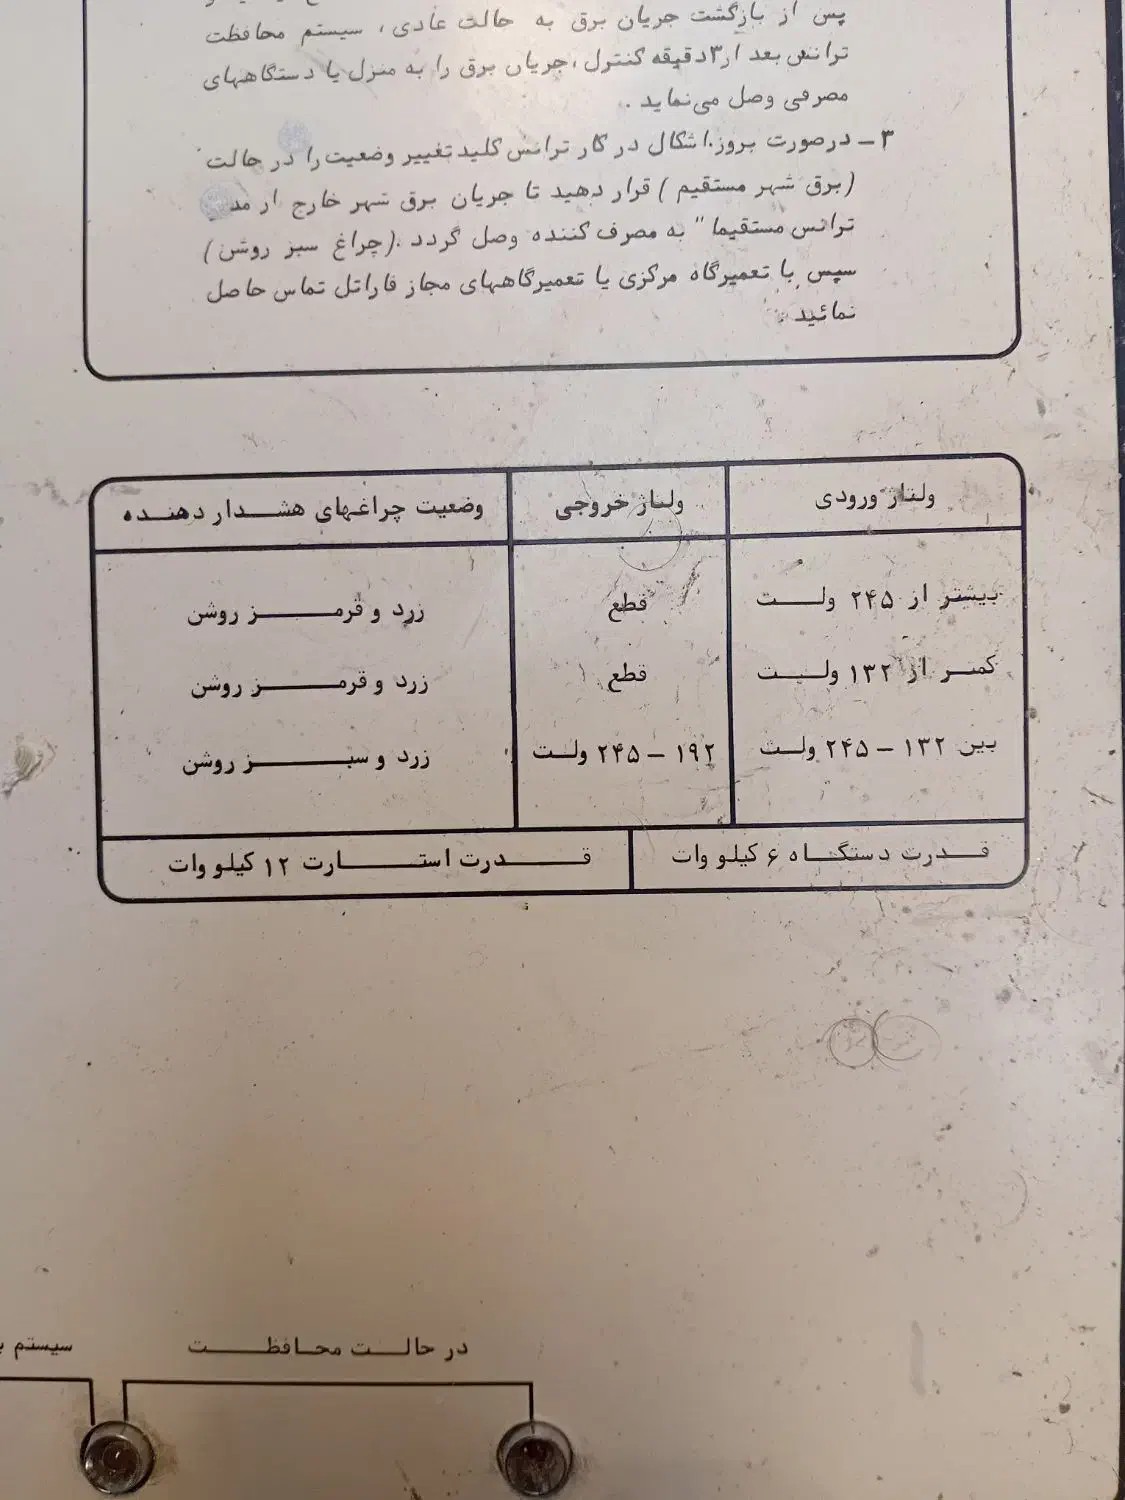 پس از بازگشت جریان برق به حالت عادی، سیستم محافظت
ترانس بعد از ۳ دقیقه کنترل، جریان برق را به منزل یا دستگاههای
مصرفی وصل می‌نماید.
۳- درصورت بروز اشکال در کار ترانس کلید تغییر وضعیت را در حالت
(برق شهر مستقیم) قرار دهید تا جریان برق شهر خارج از مد
ترانس مستقیما" به مصرف کننده وصل گردد. (چراغ سبز روشن)
سپس با تعمیرگاه مرکزی یا تعمیرگاههای مجاز فاراتل تماس حاصل
نمائید.
ولتاژ ورودی ولتاژ خروجی وضعیت چراغهای هشدار دهنده
بیشتر از ۲۴۵ ولت قطع زرد و قرمز روشن
کمتر از ۱۳۲ ولت قطع زرد و قرمز روشن
بین ۱۳۲ - ۲۴۵ ولت ۱۹۲ - ۲۴۵ ولت زرد و سبز روشن
قدرت دستگاه ۶ کیلو وات قدرت استارت ۱۲ کیلو وات
در حالت محافظت
سیستم